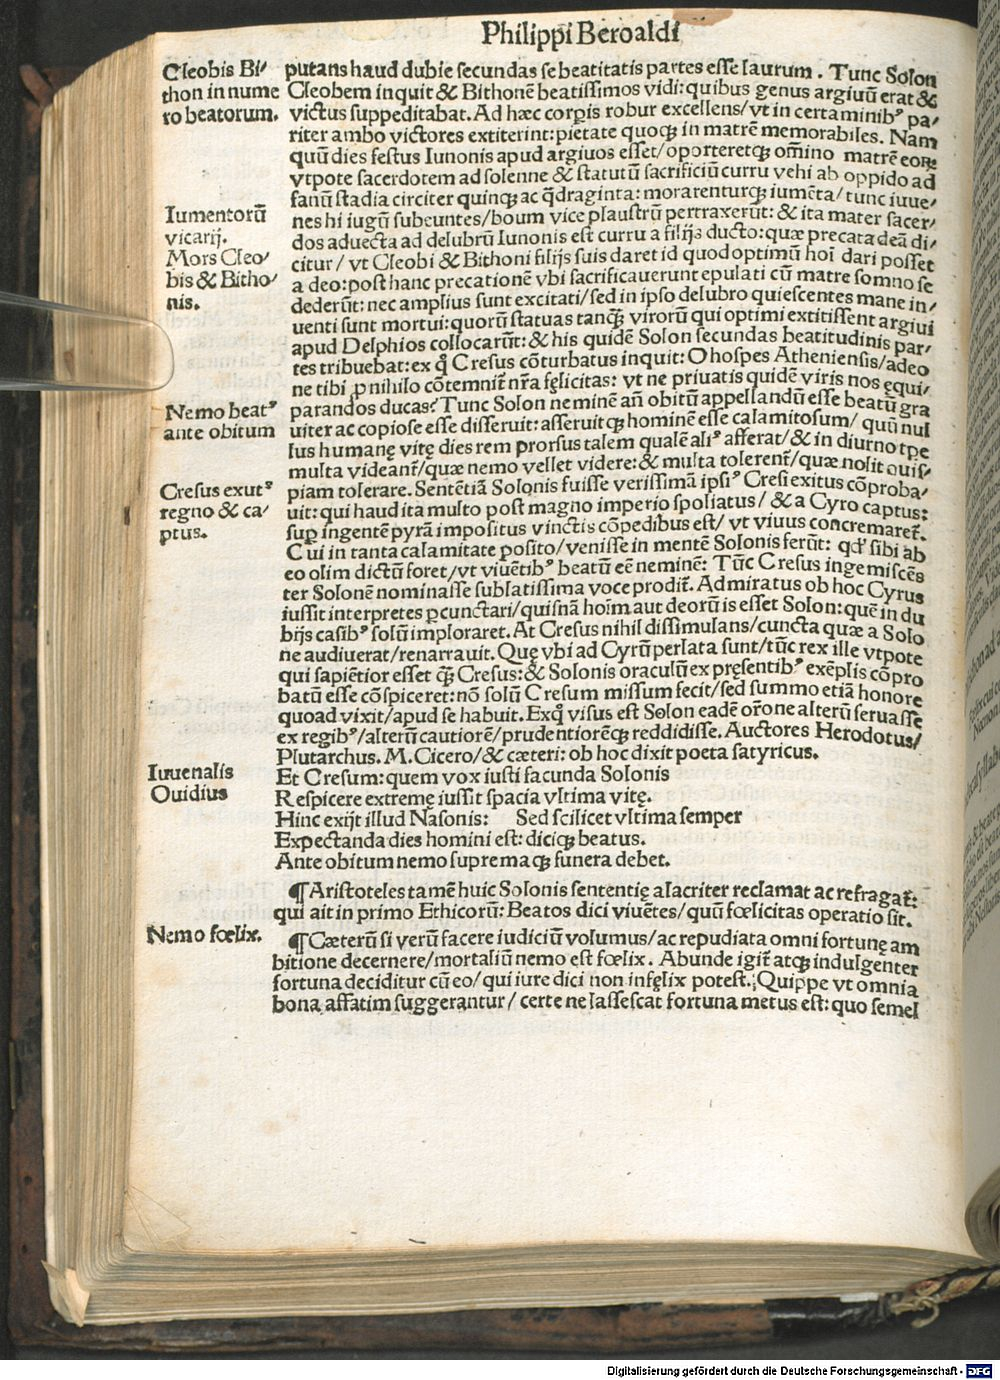 Philippi Beroaldi
Cleobis Bi/
thon in nume
ro beatorum.
putans haud dubie secundas se beatitatis partes esse laturum. Tunc Solon
Cleobem inquit & Bithonē beatissimos vidi: quibus genus argiuū erat &
victus suppeditabat. Ad hæc corpis robur excellens/ vt in certaminibꝰ pa/
riter ambo victores extiterint: pietate quoqꝫ in matrē memorabiles. Nam
quū dies festus Iunonis apud argiuos esset/ oporteretqꝫ om̄ino matrē eoꝝ
vtpote sacerdotem ad solenne & statutū sacrificiū curru vehi ab oppido ad
fanū stadia circiter quinqꝫ ac q̄draginta: morarenturqꝫ iumēta/ tunc iuue/
nes hi iugū subeuntes/ boum vice plaustrū pertraxerūt: & ita mater sacer/
dos aduecta ad delubrū Iunonis est curru a filijs ducto: quæ precata deā di/
citur/ vt Cleobi & Bithoni filijs suis daret id quod optimū hoī dari posset
a deo: post hanc precationē vbi sacrificauerunt epulati cū matre somno se
dederūt: nec amplius sunt excitati/ sed in ipso delubro quiescentes mane in/
uenti sunt mortui: quorū statuas tanqꝫ virorū qui optimi extitissent argiui
apud Delphios collocarūt: & his quidē Solon secundas beatitudinis par/
tes tribuebat: ex q̊ Cresus cōturbatus inquit: O hospes Atheniensis/ adeo
ne tibi ꝓ nihilo cōtemnit̄ nr̄a fęlicitas: vt ne priuatis quidē viris nos equi/
parandos ducas? Tunc Solon neminē añ obitū appellandū esse beatū gra
uiter ac copiose esse disseruit: asseruitqꝫ hominē esse calamitosum/ quū nul
lus humanę vitę dies rem prorsus talem qualē aliꝰ afferat/ & in diurno tp̄e
multa videant̄/ quæ nemo vellet videre: & multa tolerent̄/ quæ nolit quis/
piam tolerare. Sentētiā Solonis fuisse verissimā ipsiꝰ Cresi exitus cōproba/
uit: qui haud ita multo post magno imperio spoliatus/ & a Cyro captus:
suꝑ ingentē pyrā impositus vinctis cōpedibus est/ vt viuus concremaret̄.
Cui in tanta calamitate posito/ venisse in mentē Solonis ferūt: qđ sibi ab
eo olim dictū foret/ vt viuētibꝰ beatū eē neminē: Tūc Cresus ingemiscēs
ter Solonē nominasse sublatissima voce prodit̄. Admiratus ob hoc Cyrus
iussit interpretes ꝑcunctari/ quisnā hoīm aut deorū is esset Solon: quē in du
bijs casibꝰ solū imploraret. At Cresus nihil dissimulans/ cuncta quæ a Solo
ne audiuerat/ renarrauit. Quę vbi ad Cyrū perlata sunt/ tūc rex ille vtpote
qui sapiētior esset qꝫ Cresus: & Solonis oraculū ex pręsentibꝰ exēplis cōpro
batū esse cōspiceret: nō solū Cresum missum fecit/ sed summo etiā honore
quoad vixit/ apud se habuit. Exq̊ visus est Solon eadē or̄one alterū seruasse
ex regibꝰ/ alterū cautiorē/ prudentiorēqꝫ reddidisse. Auctores Herodotus/
Plutarchus. M. Cicero/ & cæteri: ob hoc dixit poeta satyricus.
Iumentorū
vicarij.
Mors Cleo/
bis & Bitho/
nis.
Nemo beatꝰ
ante obitum
Cresus exutꝰ
regno & ca/
ptus.
Iuuenalis
Ouidius
Et Cresum: quem vox iusti facunda Solonis
Respicere extremę iussit spacia vltima vitę.
Hinc exijt illud Nasonis: Sed scilicet vltima semper
Expectanda dies homini est: diciqꝫ beatus.
Ante obitum nemo supremaqꝫ funera debet.
¶ Aristoteles tamē huic Solonis sententię alacriter reclamat ac refragat̄:
qui ait in primo Ethicorū: Beatos dici viuētes/ quū fœlicitas operatio sit.
Nemo fœlix.
¶ Cæterū si verū facere iudiciū volumus/ ac repudiata omni fortunę am
bitione decernere/ mortaliū nemo est fœlix. Abunde igit̄ atqꝫ indulgēter
fortuna deciditur cū eo/ qui iure dici non infęlix potest. Quippe vt omnia
bona affatim suggerantur/ certe ne lassescat fortuna metus est: quo semel
Digitalisierung gefördert durch die Deutsche Forschungsgemeinschaft - DFG